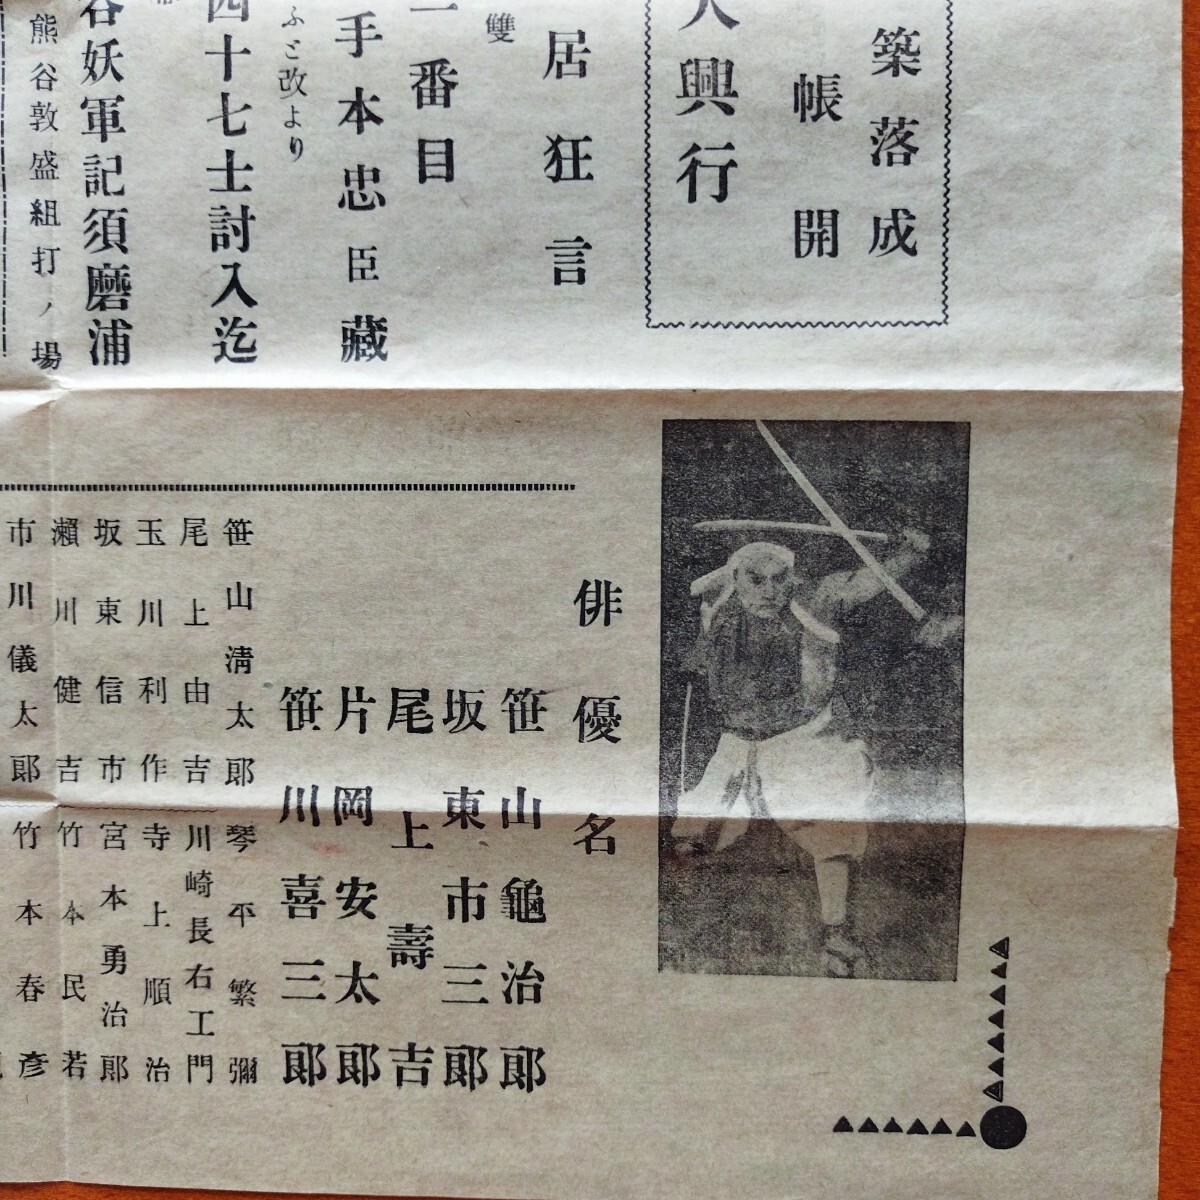 築落成
帳開
興行
居狂言
雙
一番目
手本忠臣藏
ふと改より
四十七士討入迄
谷妖軍記須磨浦
熊谷敦盛組打ノ場
俳優名
笹山龜治郎
坂東市三郎
尾上壽吉
片岡安太郎
笹川喜三郎
笹山淸太郎
尾上由吉
玉川利作
坂東信市
瀨川健吉
市川儀太郎
琴平繁彌
川崎長右工門
寺上順治
宮本勇治郎
竹本民若
竹本春彥